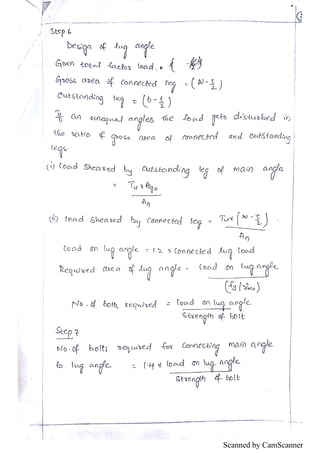 Step 6
Design of lug angle
Given total factor load =
Gross area of connected leg = (w - t/2)
Outstanding leg = (b - t/2)
If an unequal angles the load gets disturbed in
the ratio of gross area of connected and outstanding
legs
(i) Load Sheared by outstanding leg of main angle
= Tu x Ago
An
(ii) load Sheared by Connected leg = Tu x (w - t/2)
An
Load on lug angle = 1.2 x Connected lug load
Required area of lug angle = Load on lug angle
(fy / γmo)
No. of bolts required = load on lug angle
Strength of bolt
Step 7
No. of bolts required for connecting main angle
to lug angle = 1.4 x load on lug angle
Strength of bolt
Scanned by CamScanner